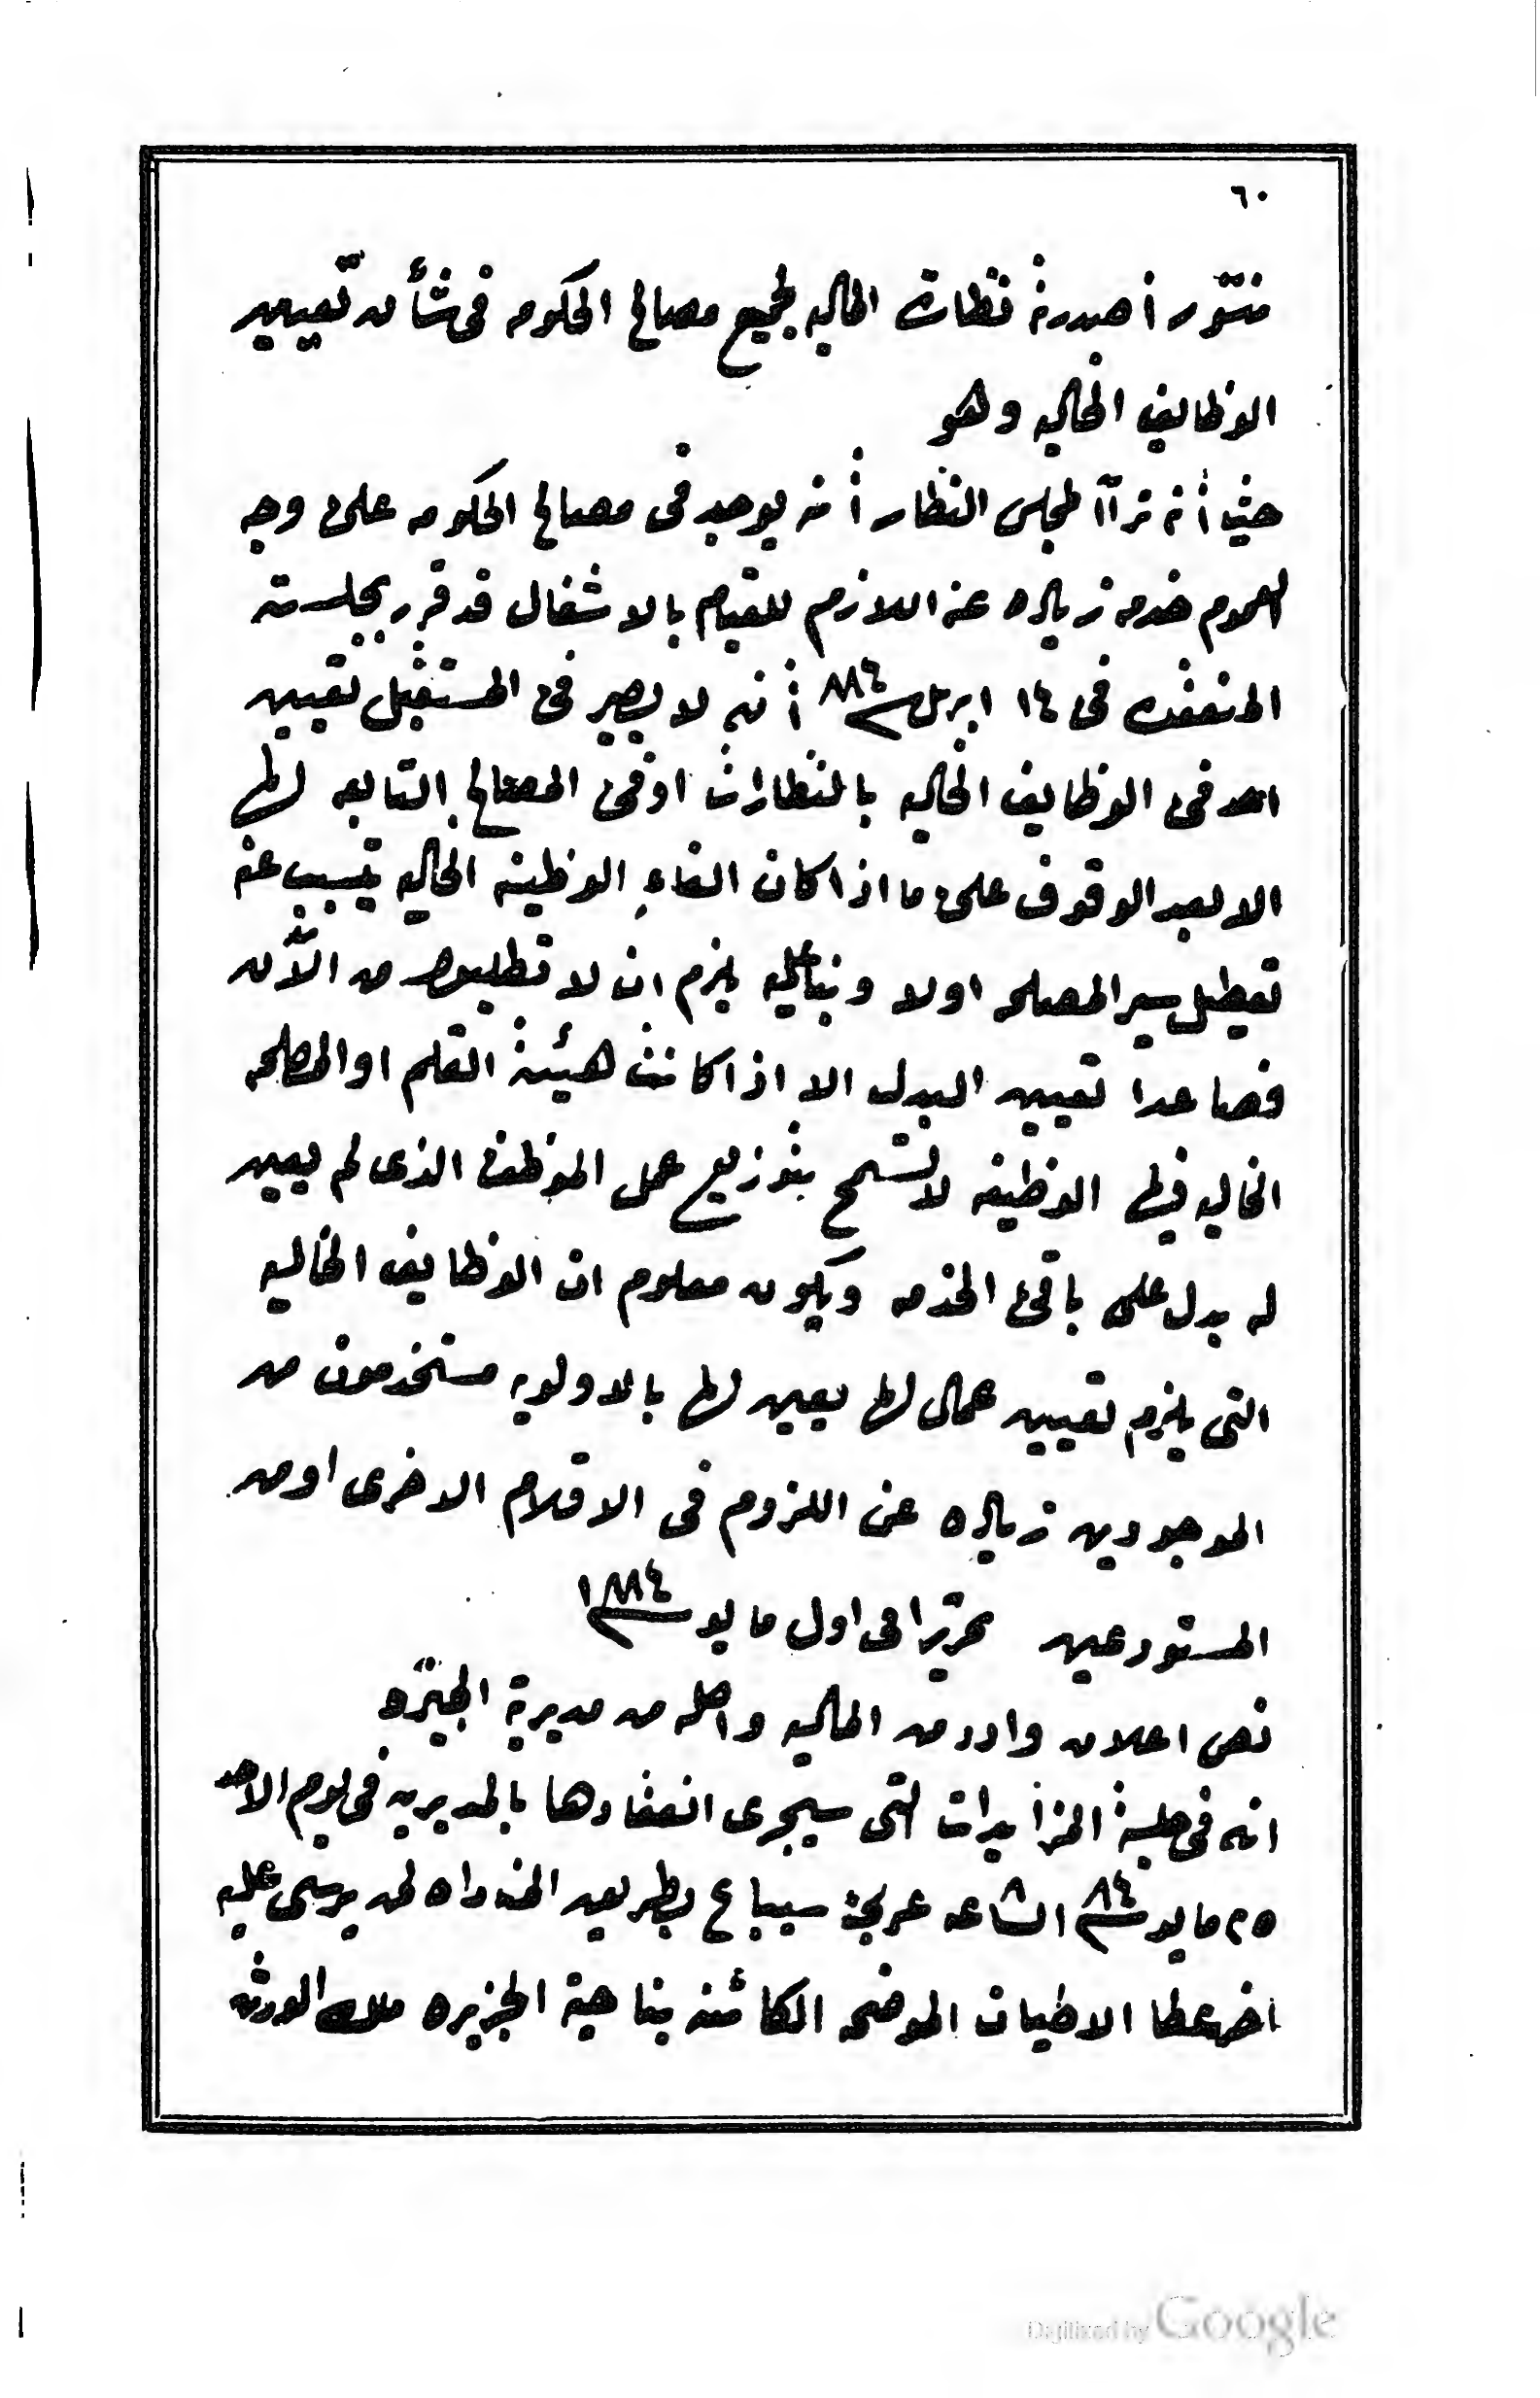 ٦٠
منشور أصدرته نظارة الماليه لجميع مصالح الحكومه فى شأن تعيين
الوظايف الخاليه وهو
حيث أنه ترآا لمجلس النظار أنه يوجد فى مصالح الحكومه على وجه
العموم خدمه زياده عن اللازم للقيام بالاشغال قد قرر بجلسته
المنعقده فى ١٤ ابريل ٨٨٤ أنه لا يصير فى المستقبل تعيين
احد فى الوظايف الخاليه بالنظارات او فى المصالح التابعه لها
الا بعد الوقوف على ما اذا كان الغاء الوظيفه الخاليه يتسبب عنه
تعطيل سير المصلحه اولا وبناعليه يلزم ان لا تطلبوا من الآن
فصاعدا تعيين البدل الا اذا كانت هيئة القلم او المصلحه
الخاليه فيها الوظيفه لا تسمح بتوزيع عمل الموظف الذى لم يعين
له بدل على باقى الخدمه ويكون معلوم ان الوظايف الخاليه
التى يلزم تعيين عمال لها يعين لها بالاولويه مستخدمون من
الموجودين زياده عن اللزوم فى الاقلام الاخرى او من
المستودعين تحريرا فى اول مايو ١٨٨٤
نص اعلان وارد من الماليه واصله من مديرية الجيزه
انه فى جلسة المزايدات التى سيجرى انعقادها بالمديريه فى يوم الاحد
٢٥ مايو ٨٤ الساعه عربى سيباع بطريق المناداه لمن يرسى عليه
اخر عطا الاطيان الموضحه الكائنه بناحية الجزيره ملك الورثه
Digitized by Google